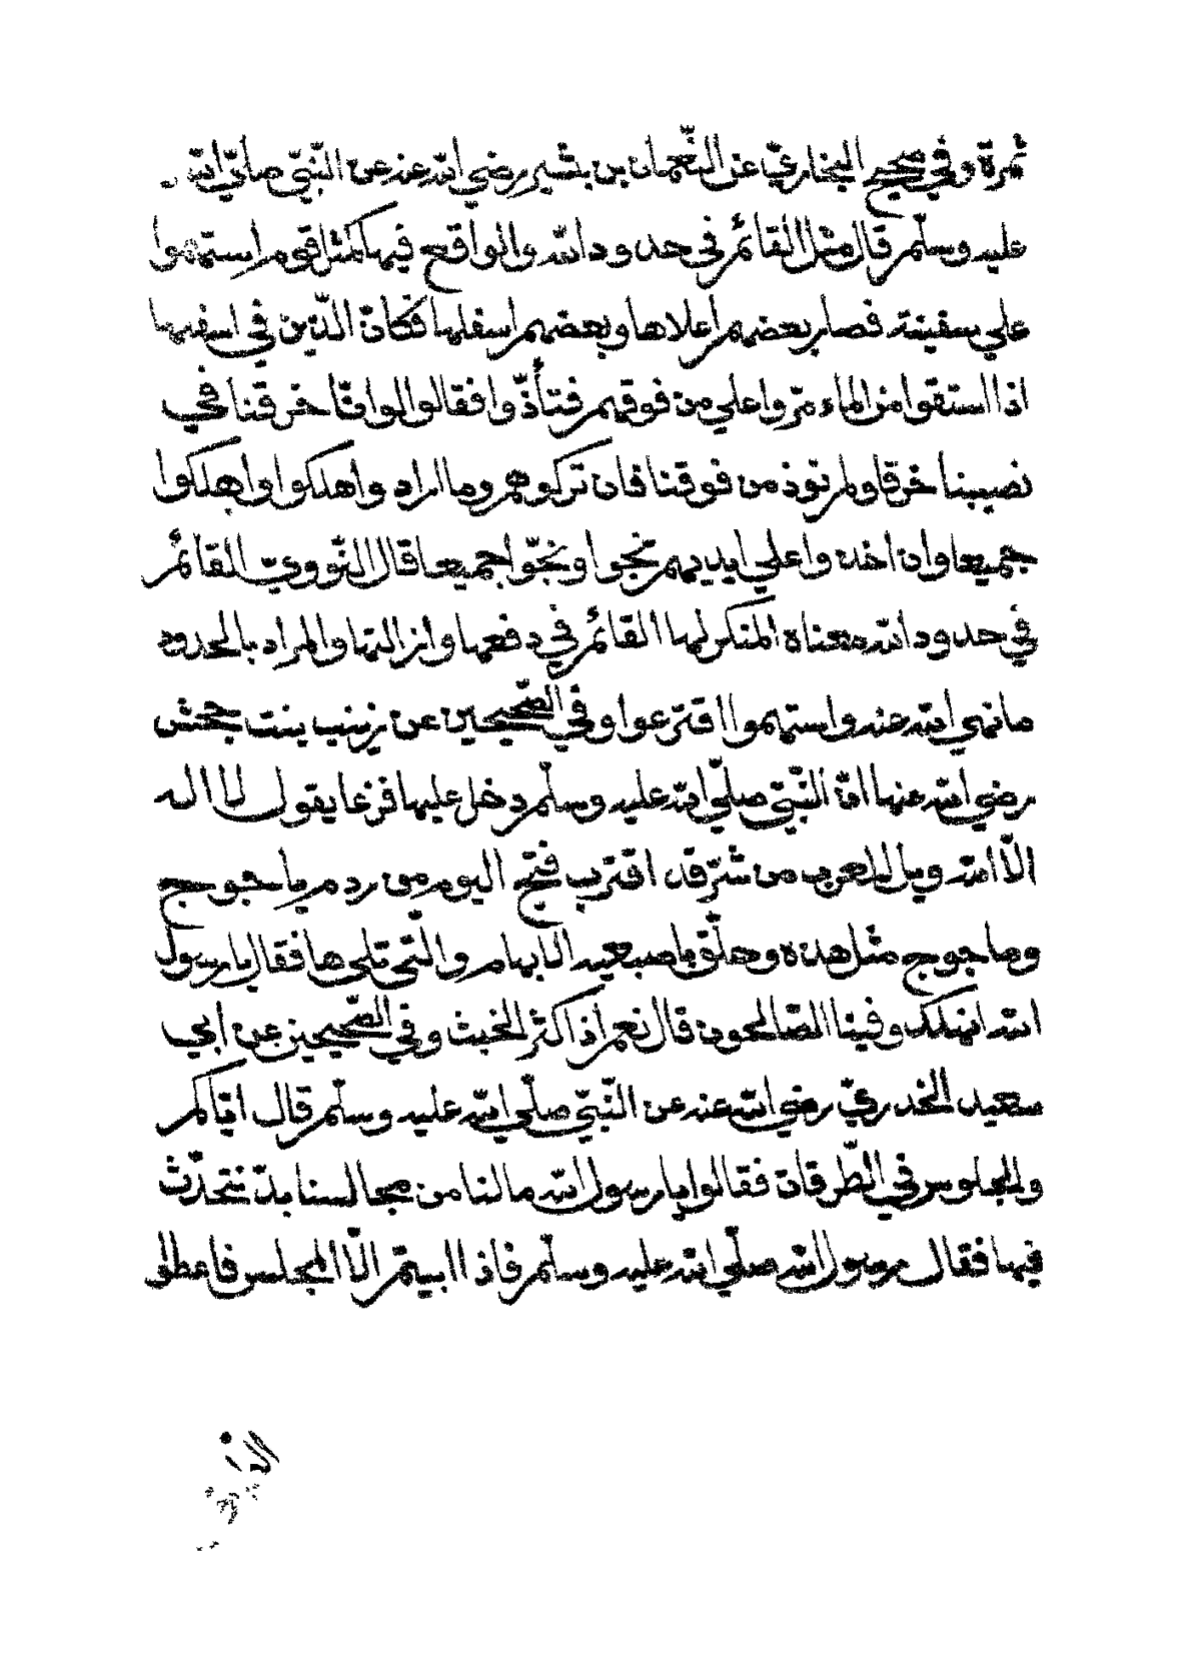 ثمرة وفي صحيح البخاريّ عن النّعمان بن بشير رضي الله عنه عن النّبيّ صلّي الله
عليه وسلّم قال مثل القائم في حدود الله والواقع فيها كمثل قوم استهموا
علي سفينة فصار بعضهم أعلاها وبعضهم اسفلها فكان الّذين في اسفلها
اذا استقوا من الماء مرّوا علي من فوقهم فتأذّوا فقالوا لوانّا خرقنا في
نصيبنا خرقا ولم نوذ من فوقنا فان تركوهم وما اراد واهلكوا واهلكوا
جميعا وان اخذوا علي ايديهم نجوا ونجّوا جميعا قال النّوويّ القائم
في حدود الله معناه المنكر لها القائم في دفعها وازالتها والمراد بالحدود
ما نهي الله عنه واستهموا اقترعوا وفي الصّحيحين عن زينب بنت جحش
رضي الله عنها انّ النّبيّ صلّي الله عليه وسلّم دخل عليها فزعا يقول لا اله
الّا الله ويل للعرب من شرّ قد اقترب فتح اليوم من ردم ياجوج
وماجوج مثل هذه وحلّق باصبعيه الابهام والّتي تلي ها فقال يارسول
الله انهلك وفينا الصّالحون قال نعم اذ اكثر الخبث وفي الصّحيحين عن ابي
سعيد الخدريّ رضي الله عنه عن النّبيّ صلّي الله عليه وسلّم قال ايّاكم
والجلوس في الطّرقات فقالوا يارسول الله مالنا من مجالسنا بدّ نتحدّث
فيها فقال رسول الله صلّي الله عليه وسلّم فاذا ابيتم الّا المجلس فاعطوا